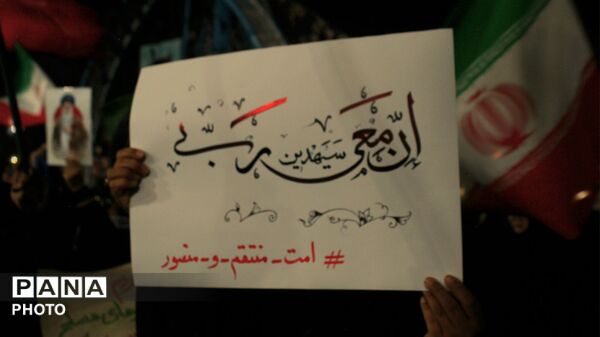 إنّ مَعي رَبّي سَيَهدين
# امت-منتقم-و-منصور
PANA
PHOTO